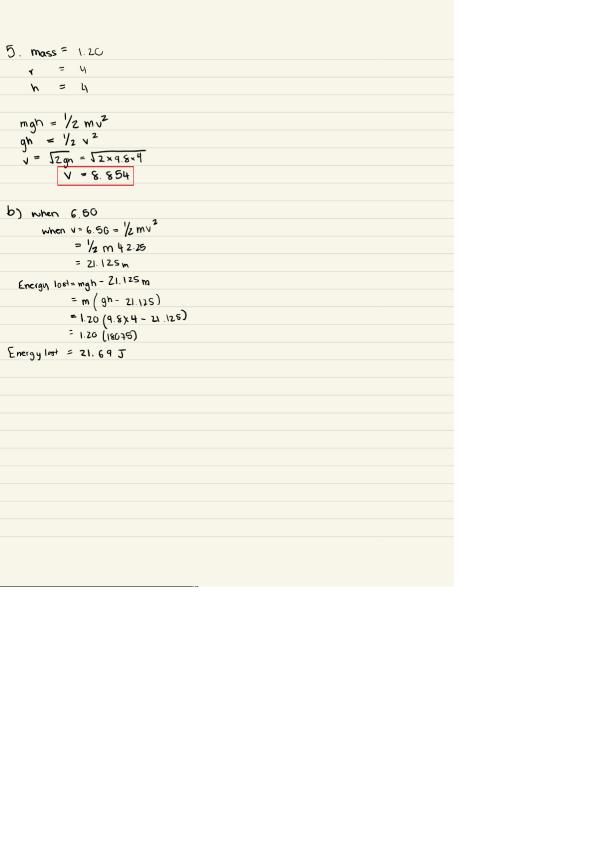 5. mass = 1.20
r = 4
h = 4
mgh = 1/2 mv²
gh = 1/2 v²
v = √2gh = √2×9.8×4
V = 8.854
b) when 6.50
when v = 6.50 = 1/2 mv²
= 1/2 m 42.25
= 21.125m
Energy lost = mgh - 21.125m
= m(gh - 21.125)
= 1.20 (9.8×4 - 21.125)
= 1.20 (18.075)
Energy lost = 21.69 J